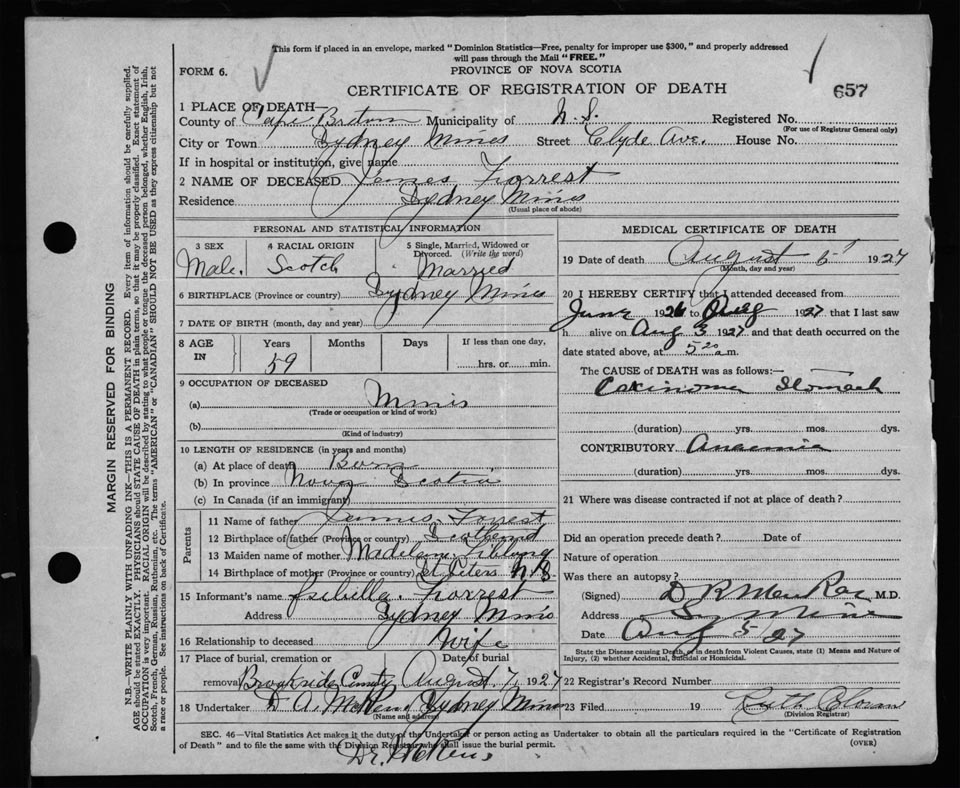 This form if placed in an envelope, marked "Dominion Statistics—Free, penalty for improper use $300," and properly addressed
will pass through the Mail "FREE."
FORM 6.
PROVINCE OF NOVA SCOTIA
CERTIFICATE OF REGISTRATION OF DEATH
657
1 PLACE OF DEATH—
County of Cape Breton Municipality of N. S. Registered No.
(For use of Registrar General only)
City or Town Sydney Mines Street Clyde Ave. House No.
If in hospital or institution, give name
2 NAME OF DECEASED James Forrest
Residence Sydney Mines
(Usual place of abode)
PERSONAL AND STATISTICAL INFORMATION
3 SEX 4 RACIAL ORIGIN 5 Single, Married, Widowed or Divorced. (Write the word)
Male. Scotch Married
6 BIRTHPLACE (Province or country) Sydney Mines
7 DATE OF BIRTH (month, day and year)
8 AGE IN Years Months Days If less than one day,
59 hrs. or min.
9 OCCUPATION OF DECEASED
(a)
(Trade or occupation or kind of work)
(b)
(Kind of industry)
10 LENGTH OF RESIDENCE (in years and months)
(a) At place of death Born
(b) In province Nova Scotia
(c) In Canada (if an immigrant)
Parents
11 Name of father James Forrest
12 Birthplace of father (Province or country) Scotland
13 Maiden name of mother
14 Birthplace of mother (Province or country) St Peters N.S.
15 Informant's name Isibella Forrest
Address Sydney Mines
16 Relationship to deceased Wife
17 Place of burial, cremation or Date of burial
removal Brookside August 7, 1927
18 Undertaker Sydney Mines
(Name and address)
MEDICAL CERTIFICATE OF DEATH
19 Date of death August 5 1927
(Month, day and year)
20 I HEREBY CERTIFY that I attended deceased from
June 1926 to Aug 1927, that I last saw
h alive on Aug 3 1927 and that death occurred on the
date stated above, at 5 20 a.m.
The CAUSE OF DEATH was as follows:—
Carcinoma Stomach
(duration) yrs. mos. dys.
CONTRIBUTORY Anaemia
(duration) yrs. mos. dys.
21 Where was disease contracted if not at place of death?
Did an operation precede death? Date of
Nature of operation
Was there an autopsy?
(Signed) M.D.
Address S. Mines
Date Aug 5 27
State the Disease causing Death, or in death from Violent Causes, state (1) Means and Nature of
Injury, (2) whether Accidental, Suicidal or Homicidal.
22 Registrar's Record Number
23 Filed 19 Ruth
(Division Registrar)
SEC. 46—Vital Statistics Act makes it the duty of the Undertaker or person acting as Undertaker to obtain all the particulars required in the "Certificate of Registration
of Death" and to file the same with the Division Registrar who shall issue the burial permit.
(OVER)
Dr.
MARGIN RESERVED FOR BINDING
N.B.—WRITE PLAINLY WITH UNFADING INK—THIS IS A PERMANENT RECORD. Every item of information should be carefully supplied.
AGE should be stated EXACTLY. PHYSICIANS should STATE CAUSE OF DEATH in plain terms, so that it may be properly classified. Exact statement of
OCCUPATION is very important. RACIAL ORIGIN will be described by stating to what people or tongue the deceased person belonged, whether English, Irish,
Scotch, French, German, Russian, Ruthenian, etc. The terms "AMERICAN" or "CANADIAN" SHOULD NOT BE USED as they express citizenship but not
a race or people. See instructions on back of Certificate.